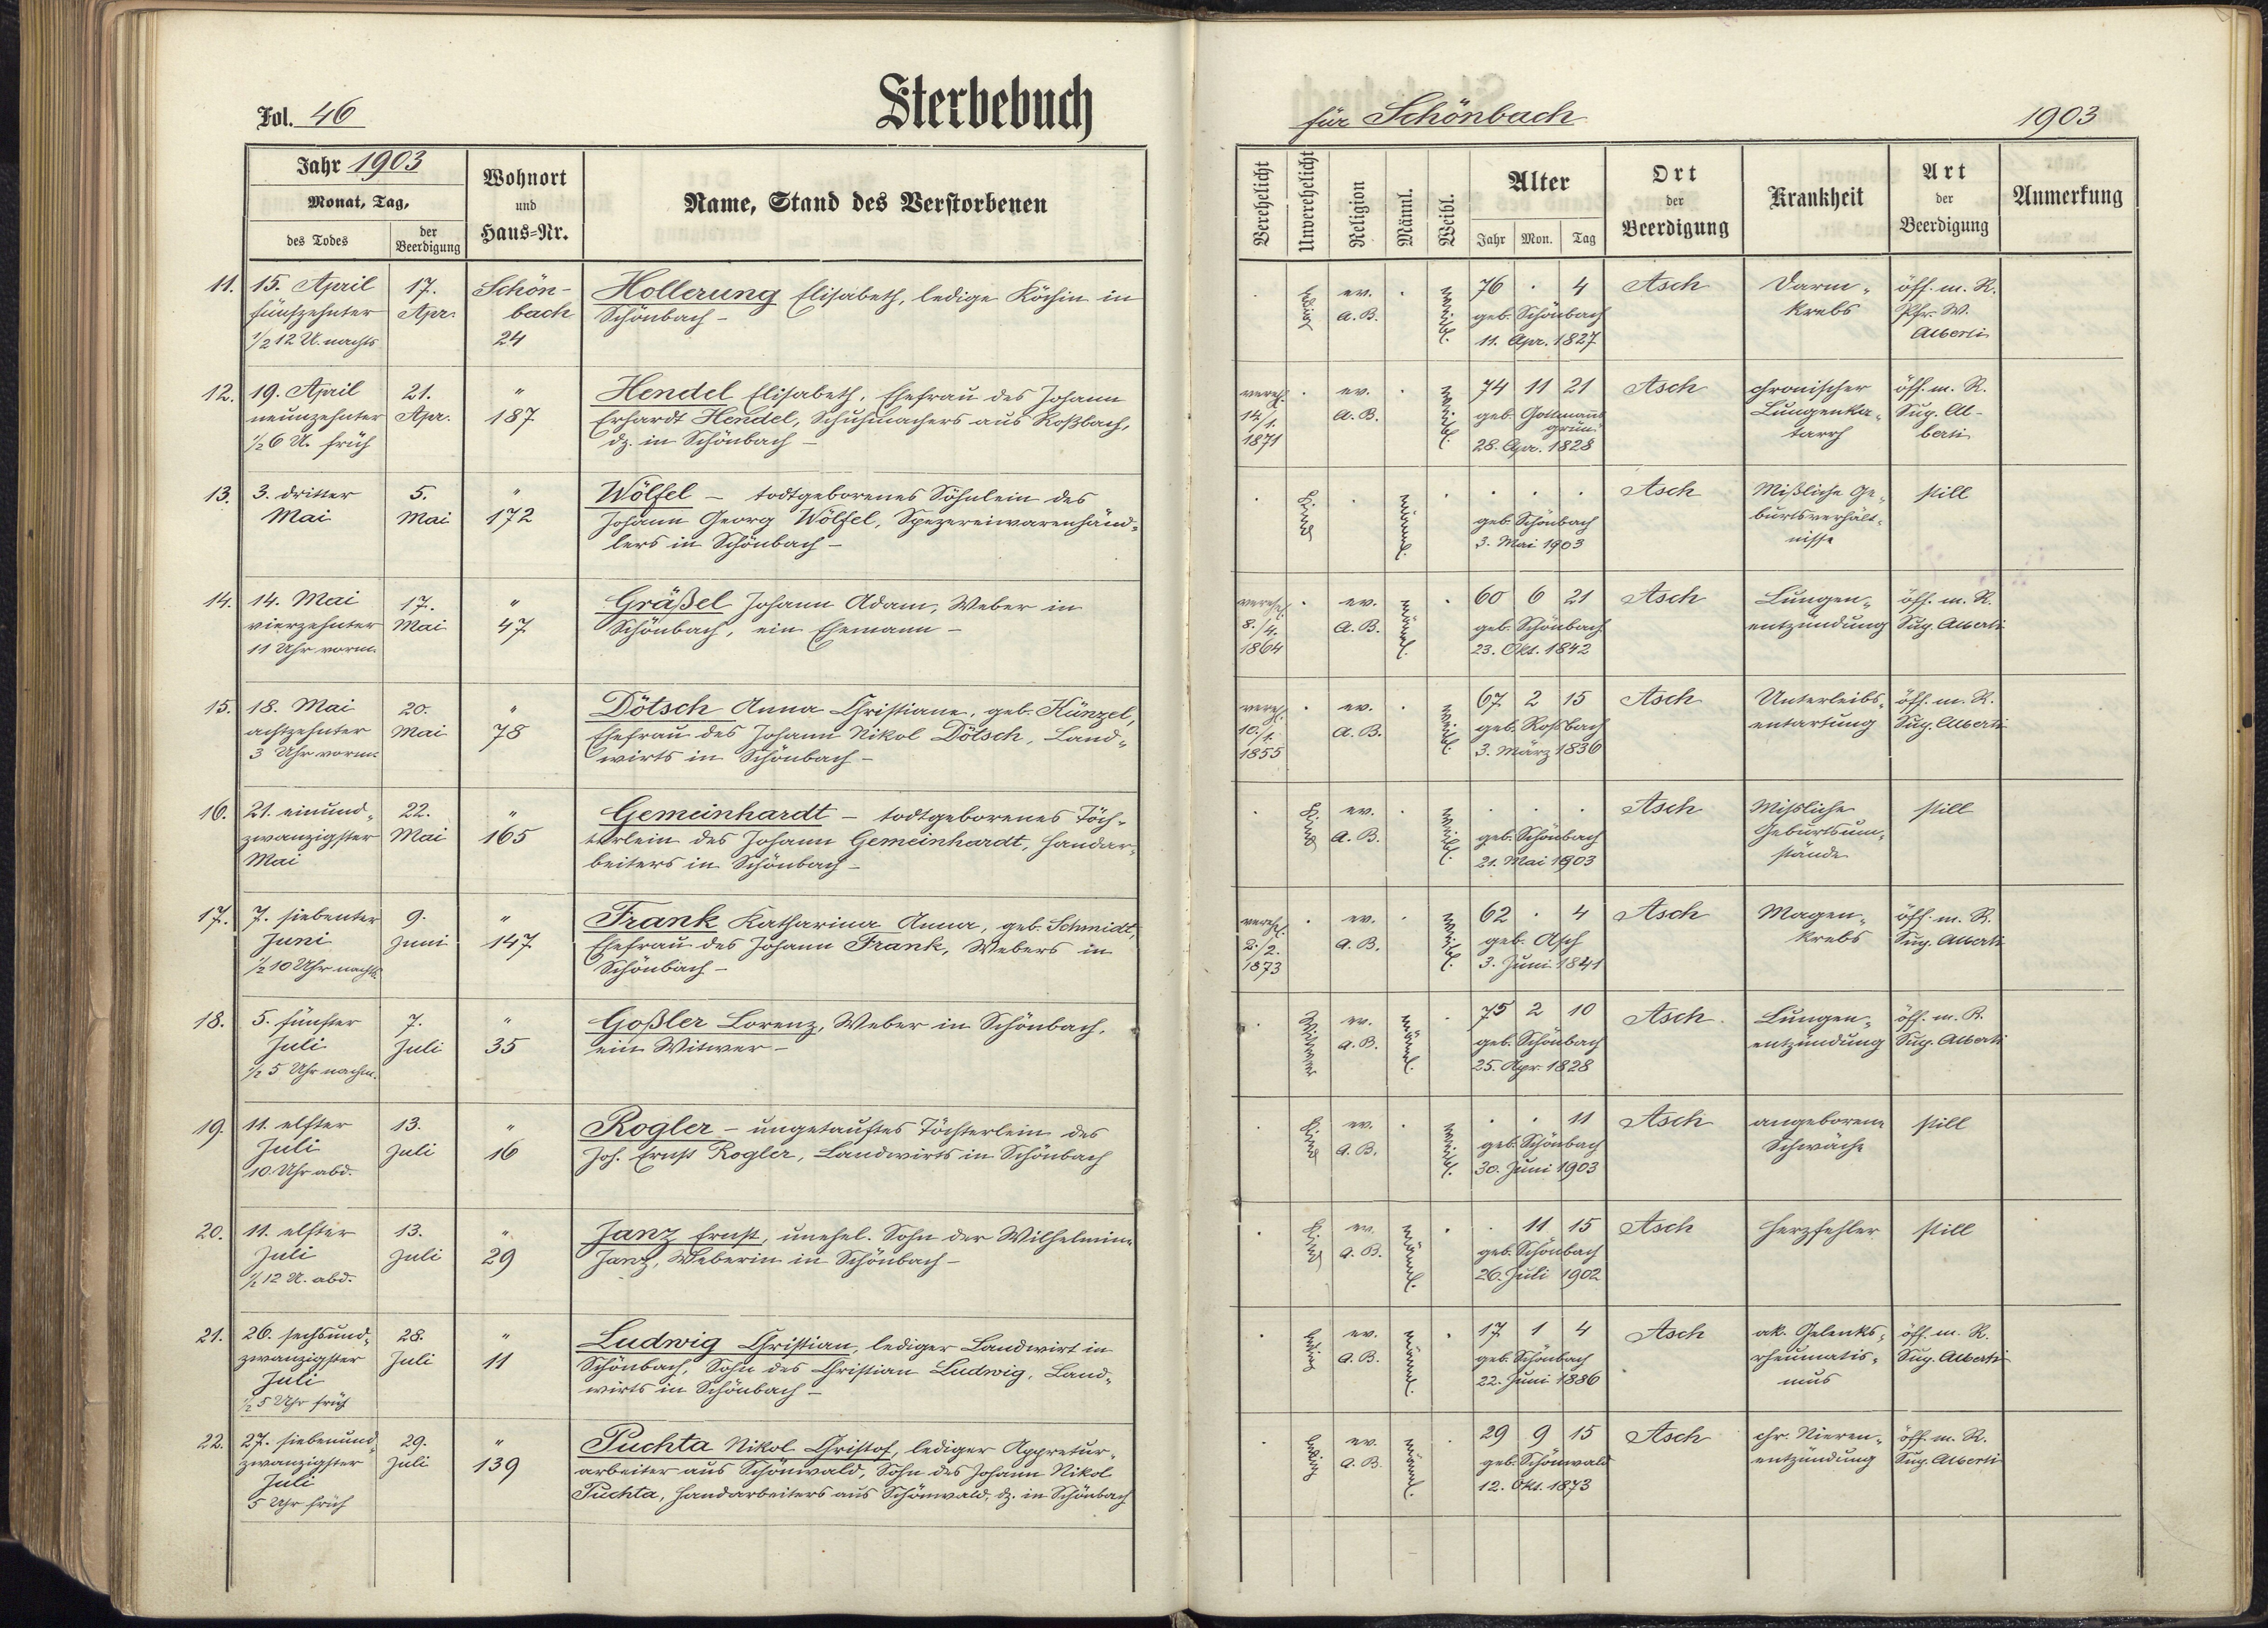 Fol. 46
Sterbebuch
für Schönbach
1903
Jahr 1903
Monat, Tag,
des Todes
der Beerdigung
Wohnort
und
Haus-Nr.
Name, Stand des Verstorbenen
Verehelicht
Unverehelicht
Religion
Männl.
Weibl.
Alter
Jahr Mon. Tag
Ort
der
Beerdigung
Krankheit
Art
der
Beerdigung
Anmerkung
11. 15. April 17. Schön- Hollerung Elisabeth, ledige Köchin in . ledig ev. . weibl. 76 . 4 Asch Darm- öff. m. R.
fünfzehnter Apr. bach Schönbach – a. B. geb. Schönbach krebs Pfr. W.
1/2 12 U. nachts 24 11. Apr. 1827 Alberti
12. 19. April 21. " Hendel Elisabeth, Ehefrau des Johann vereh. . ev. . weibl. 74 11 21 Asch chronischer öff. m. R.
neunzehnter Apr. 187 Erhardt Hendel, Schuhmachers aus Roßbach, 14/1. a. B. geb. Gottmanns Lungenka- Sup. Al-
1/2 6 U. früh dz. in Schönbach – 1871 grün tarrh berti
28. Apr. 1828
13. 3. dritter 5. " Wölfel – todtgeborenes Söhnlein des . Kind . männl. . . . . Asch Mißliche Ge- still
Mai Mai 172 Johann Georg Wölfel, Spezereiwarenhänd- geb. Schönbach burtsverhält-
lers in Schönbach – 3. Mai 1903 nisse
14. 14. Mai 17. " Gräßel Johann Adam, Weber in verehel. . ev. männl. . 60 6 21 Asch Lungen- öff. m. R.
vierzehnter Mai 47 Schönbach, ein Ehemann – 8./4. a. B. geb. Schönbach entzündung Sup. Alberti
11 Uhr vorm. 1864 23. Okt. 1842
15. 18. Mai 20. " Dötsch Anna Christiane, geb. Künzel, vereh. . ev. . weibl. 67 2 15 Asch Unterleibs- öff. m. R.
achtzehnter Mai 78 Ehefrau des Johann Nikol Dötsch, Land- 10./1. a. B. geb. Roßbach entartung Sup. Alberti
3 Uhr vorm. wirts in Schönbach – 1855 3. März 1836
16. 21. einund- 22. " Gemeinhardt – todtgeborenes Töch- . Kind ev. . weibl. . . . Asch Missliche still
zwanzigster Mai 165 terlein des Johann Gemeinhardt, Handar- a. B. geb. Schönbach Geburtsum-
Mai beiters in Schönbach – 21. Mai 1903 stände
17. 7. siebenter 9. " Frank Katharina Anna, geb. Schmidt, verehel. . ev. . weibl. 62 . 4 Asch Magen- öff. m. R.
Juni Juni 147 Ehefrau des Johann Frank, Webers in 2./2. a. B. geb. Asch krebs Sup. Alberti
1/2 10 Uhr nachts Schönbach – 1873 3. Juni 1841
18. 5. fünfter 7. " Goßler Lorenz, Weber in Schönbach, . Witwer ev. männl. . 75 2 10 Asch. Lungen- öff. m. R.
Juli Juli 35 ein Witwer – a. B. geb. Schönbach entzündung Sup. Alberti
1/2 5 Uhr nachm. 25. Apr. 1828
19. 11. elfter 13. " Rogler – ungetauftes Töchterlein des . Kind ev. . weibl. . . 11 Asch angeborene still
Juli Juli 16 Joh. Ernst Rogler, Landwirts in Schönbach a. B. geb. Schönbach Schwäche
10 Uhr abd. 30. Juni 1903
20. 11. elfter 13. " Janz Ernst, unehel. Sohn der Wilhelmine . Kind ev. männl. . . 11 15 Asch Herzfehler still
Juli Juli 29 Janz, Weberin in Schönbach – a. B. geb. Schönbach
1/2 12 U. abd. 26. Juli 1902
21. 26. sechsund- 28. " Ludwig Christian, lediger Landwirt in . ledig ev. männl. . 17 1 4 Asch ak. Gelenks- öff. m. R.
zwanzigster Juli 11 Schönbach, Sohn des Christian Ludwig, Land- a. B. geb. Schönbach rheumatis- Sup. Alberti
Juli wirts in Schönbach – 22. Juni 1886 mus
1/2 5 Uhr früh
22. 27. siebenund- 29. " Puchta Nikol Christof, lediger Appretur- . ledig ev. männl. . 29 9 15 Asch chr. Nieren- öff. m. R.
zwanzigster Juli 139 arbeiter aus Schönwald, Sohn des Johann Nikol a. B. geb. Schönwald entzündung Sup. Alberti
Juli Puchta, Handarbeiters aus Schönwald, dz. in Schönbach 12. Okt. 1873
5 Uhr früh